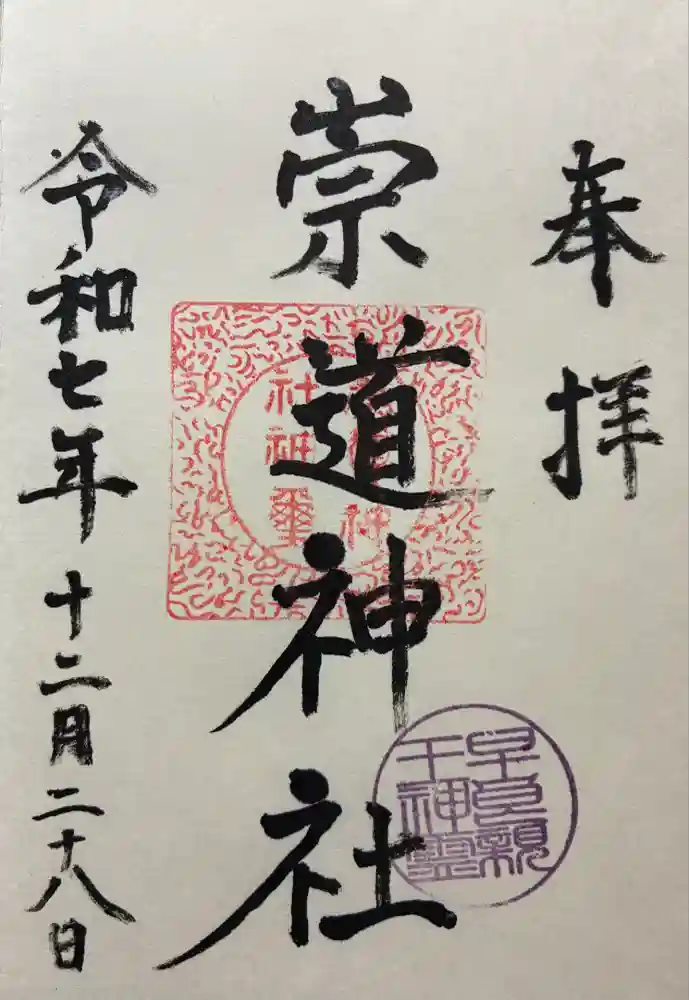 奉拝
崇道神社
令和七年十二月二十八日
早良親
王神霊
社神璽